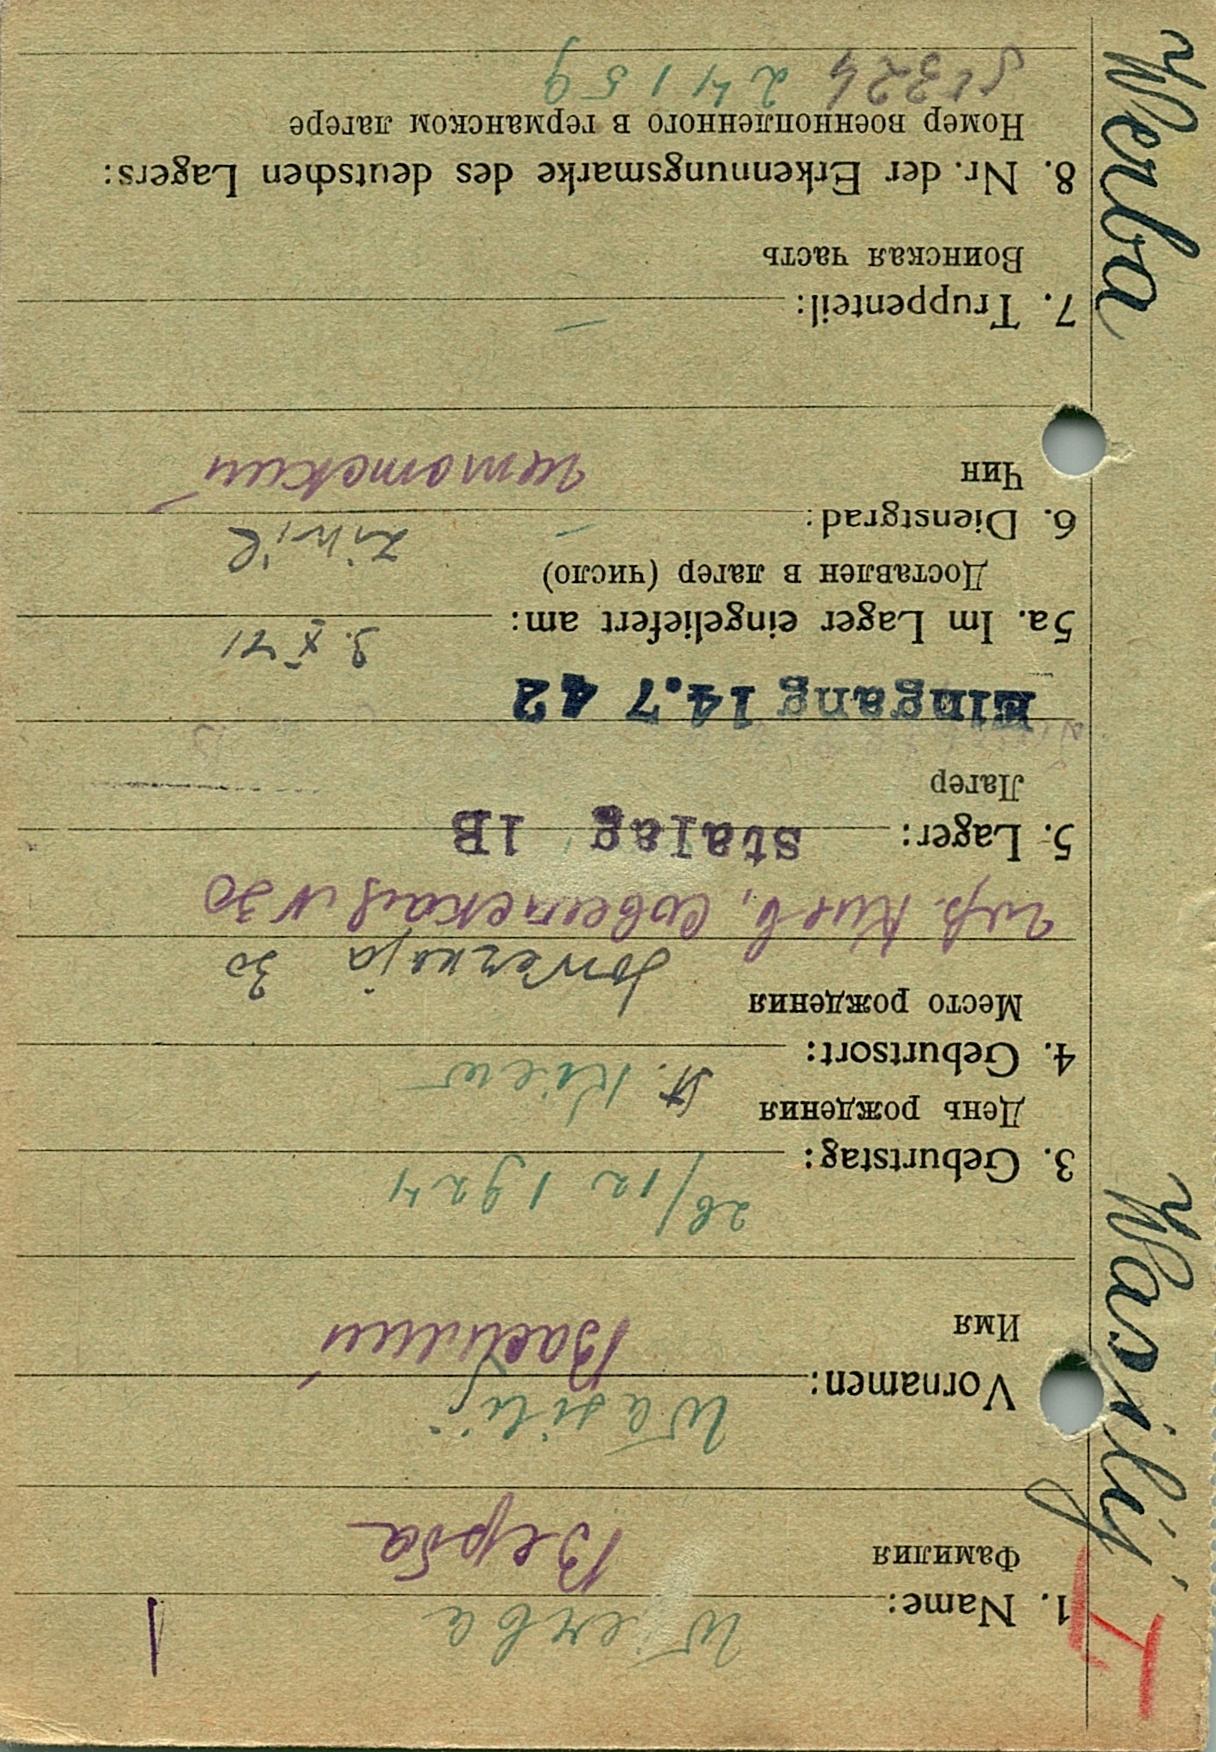 Werba Wasilij
1
I
Wierba
1. Name:
Фамилия
Верба
Wasilij
Vornamen:
Имя
Василий
26/12 1924
3. Geburtstag:
День рождения
Kiew
4. Geburtsort:
Место рождения
30
гор. Киев, Советская N 30
5. Lager: Stalag 1B
Лагер
Eingang 14.7 42
9. X 41
5a. Im Lager eingeliefert am:
Доставлен в лагер (число)
Zivil
6. Dienstgrad: —
Чин
7. Truppenteil: —
Воинская часть
8. Nr. der Erkennungsmarke des deutschen Lagers:
Номер военнопленного в германском лагере
St 324 24159